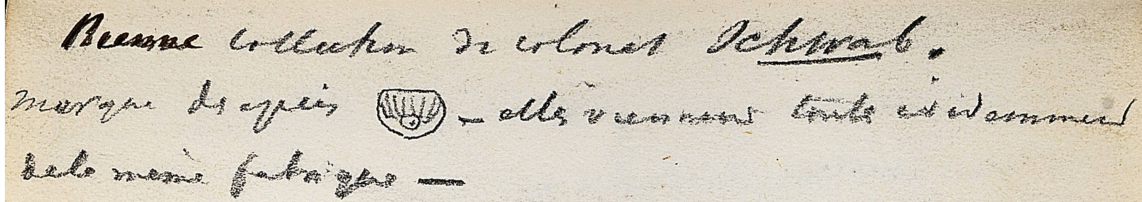 Bienne collection du colonel Schwab.
marque des epées — elles viennent toutes evidemment
de la même fabrique —